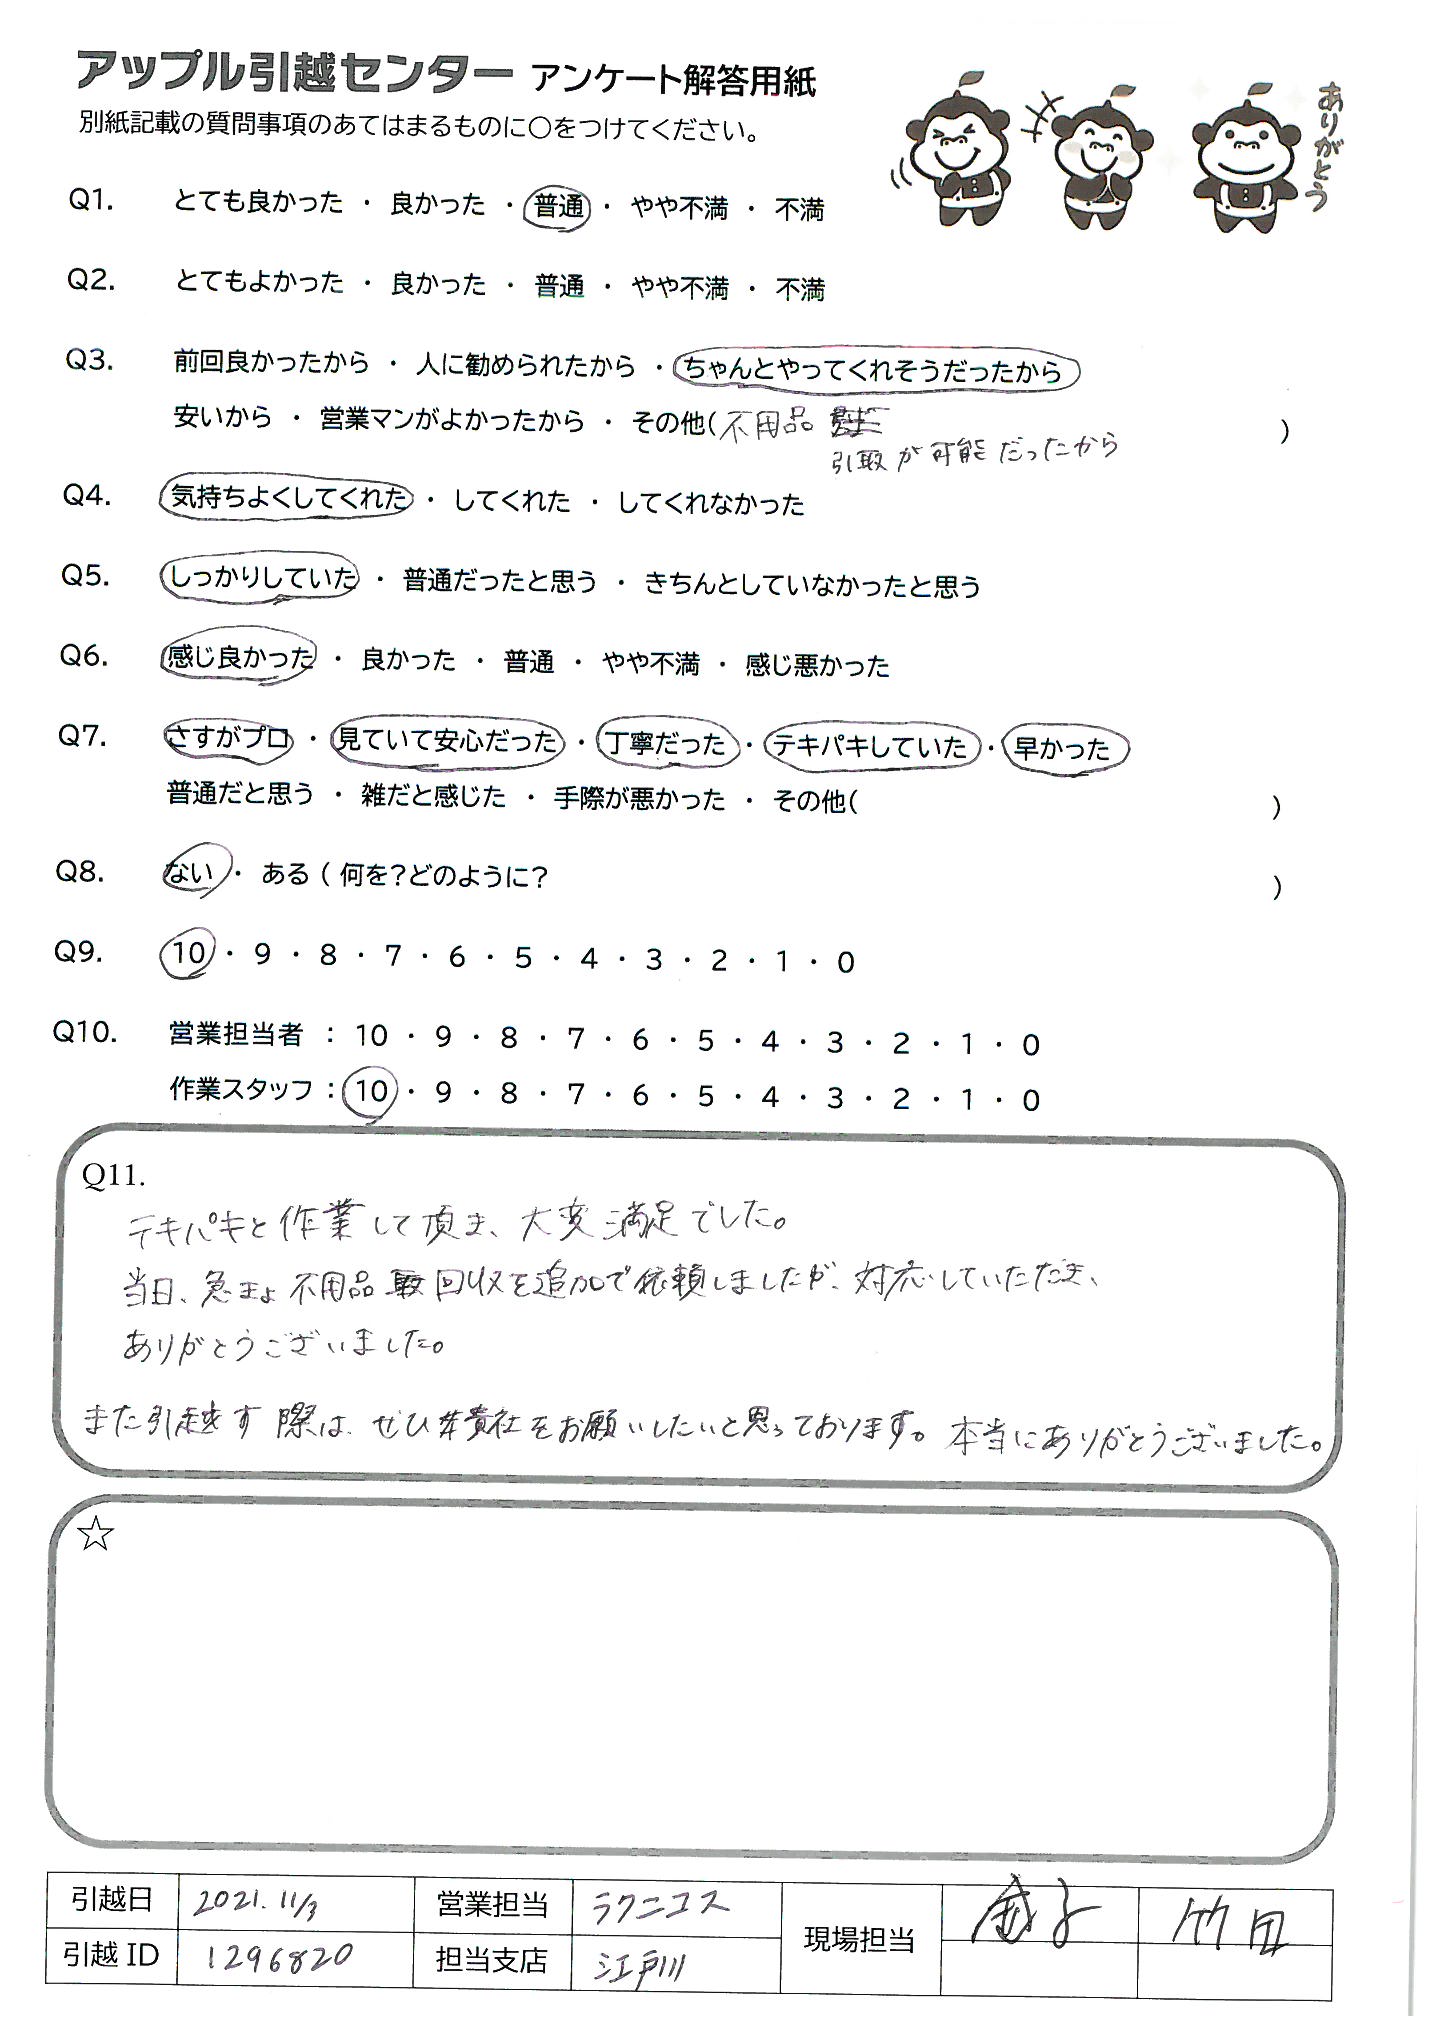 アップル引越センター アンケート解答用紙
ありがとう
別紙記載の質問事項のあてはまるものに○をつけてください。
Q1. とても良かった ・ 良かった ・ 普通 ・ やや不満 ・ 不満
Q2. とてもよかった ・ 良かった ・ 普通 ・ やや不満 ・ 不満
Q3. 前回良かったから ・ 人に勧められたから ・ ちゃんとやってくれそうだったから
安いから ・ 営業マンがよかったから ・ その他(不用品 )
引取が可能だったから
Q4. 気持ちよくしてくれた ・ してくれた ・ してくれなかった
Q5. しっかりしていた ・ 普通だったと思う ・ きちんとしていなかったと思う
Q6. 感じ良かった ・ 良かった ・ 普通 ・ やや不満 ・ 感じ悪かった
Q7. さすがプロ ・ 見ていて安心だった ・ 丁寧だった ・ テキパキしていた ・ 早かった
普通だと思う ・ 雑だと感じた ・ 手際が悪かった ・ その他( )
Q8. ない ・ ある ( 何を?どのように? )
Q9. 10 ・ 9 ・ 8 ・ 7 ・ 6 ・ 5 ・ 4 ・ 3 ・ 2 ・ 1 ・ 0
Q10. 営業担当者 : 10 ・ 9 ・ 8 ・ 7 ・ 6 ・ 5 ・ 4 ・ 3 ・ 2 ・ 1 ・ 0
作業スタッフ : 10 ・ 9 ・ 8 ・ 7 ・ 6 ・ 5 ・ 4 ・ 3 ・ 2 ・ 1 ・ 0
Q11.
テキパキと作業して頂き、大変満足でした。
当日、急きょ不用品回収を追加で依頼しましたが、対応していただき、
ありがとうございました。
また引越す際は、ぜひ貴社をお願いしたいと思っております。本当にありがとうございました。
☆
引越日 2021.11/3 営業担当 ラクニコス 現場担当 金子 竹田
引越 ID 1296820 担当支店 江戸川